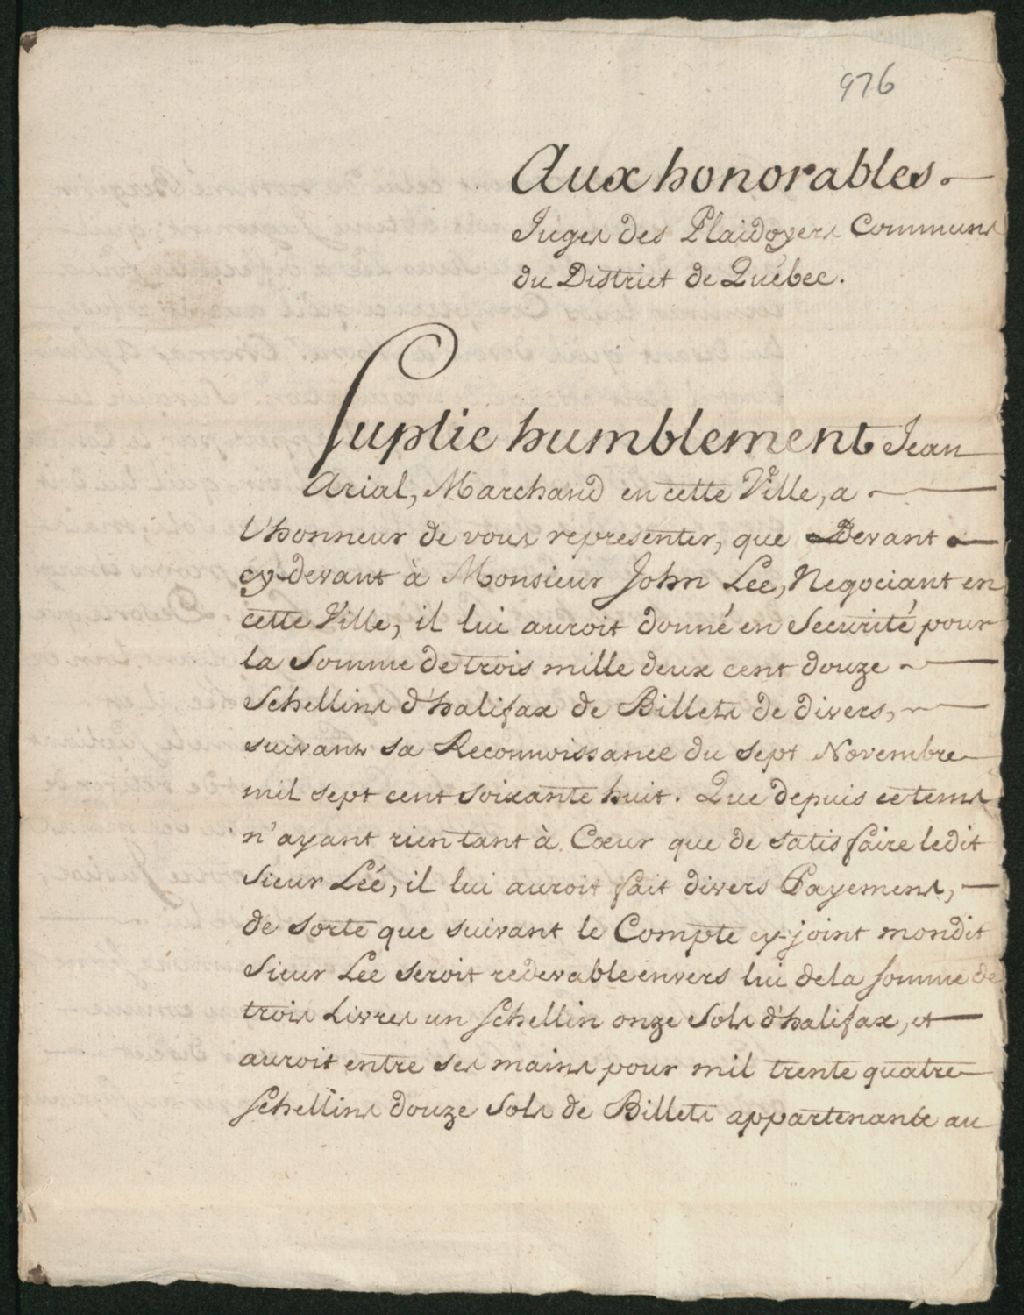 976
Aux honorables
Juges des Plaidoyers Communs
du District de Québec.
Suplie humblement Jean
Arial, Marchand en cette Ville, a
l'honneur de vous representer, que Devant
cy-devant à Monsieur John Lee, Negociant en
cette Ville, il lui auroit donné en Securité pour
la Somme de trois mille deux cent douze
Schellins d'halifax de Billets de divers,
suivant sa Reconnoissance du sept Novembre
mil sept cent soixante huit. Que depuis ce tems
n'ayant rien tant à Cœur que de satisfaire ledit
Sieur Léé, il lui auroit fait divers Payemens,
de sorte que suivant le Compte cy-joint mondit
Sieur Lee seroit redevable envers lui de la somme de
trois Livres un schellin onze Sols d'halifax, et
auroit entre ses mains pour mil trente quatre
schellins douze Sols de Billets appartenants au